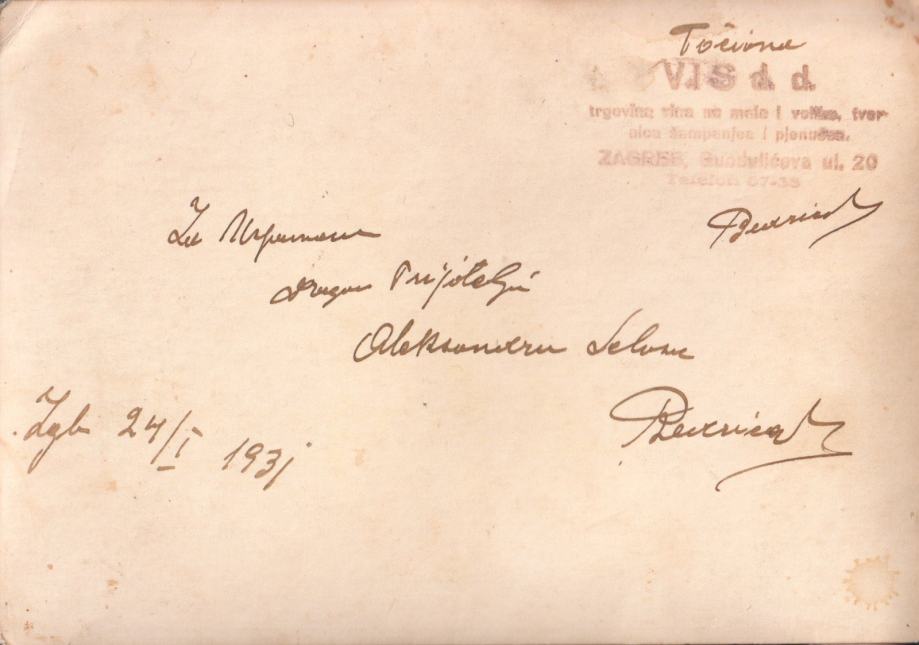 Točiona
VIS d. d.
trgovina vina na malo i veliko, tvor-
nica šampanjca i pjenušca.
ZAGREB, Gundulićeva ul. 20
Telefon 67-35
Za Uspomenu
dragom Prijatelju
Aleksandru
Zgb 24/I 1931